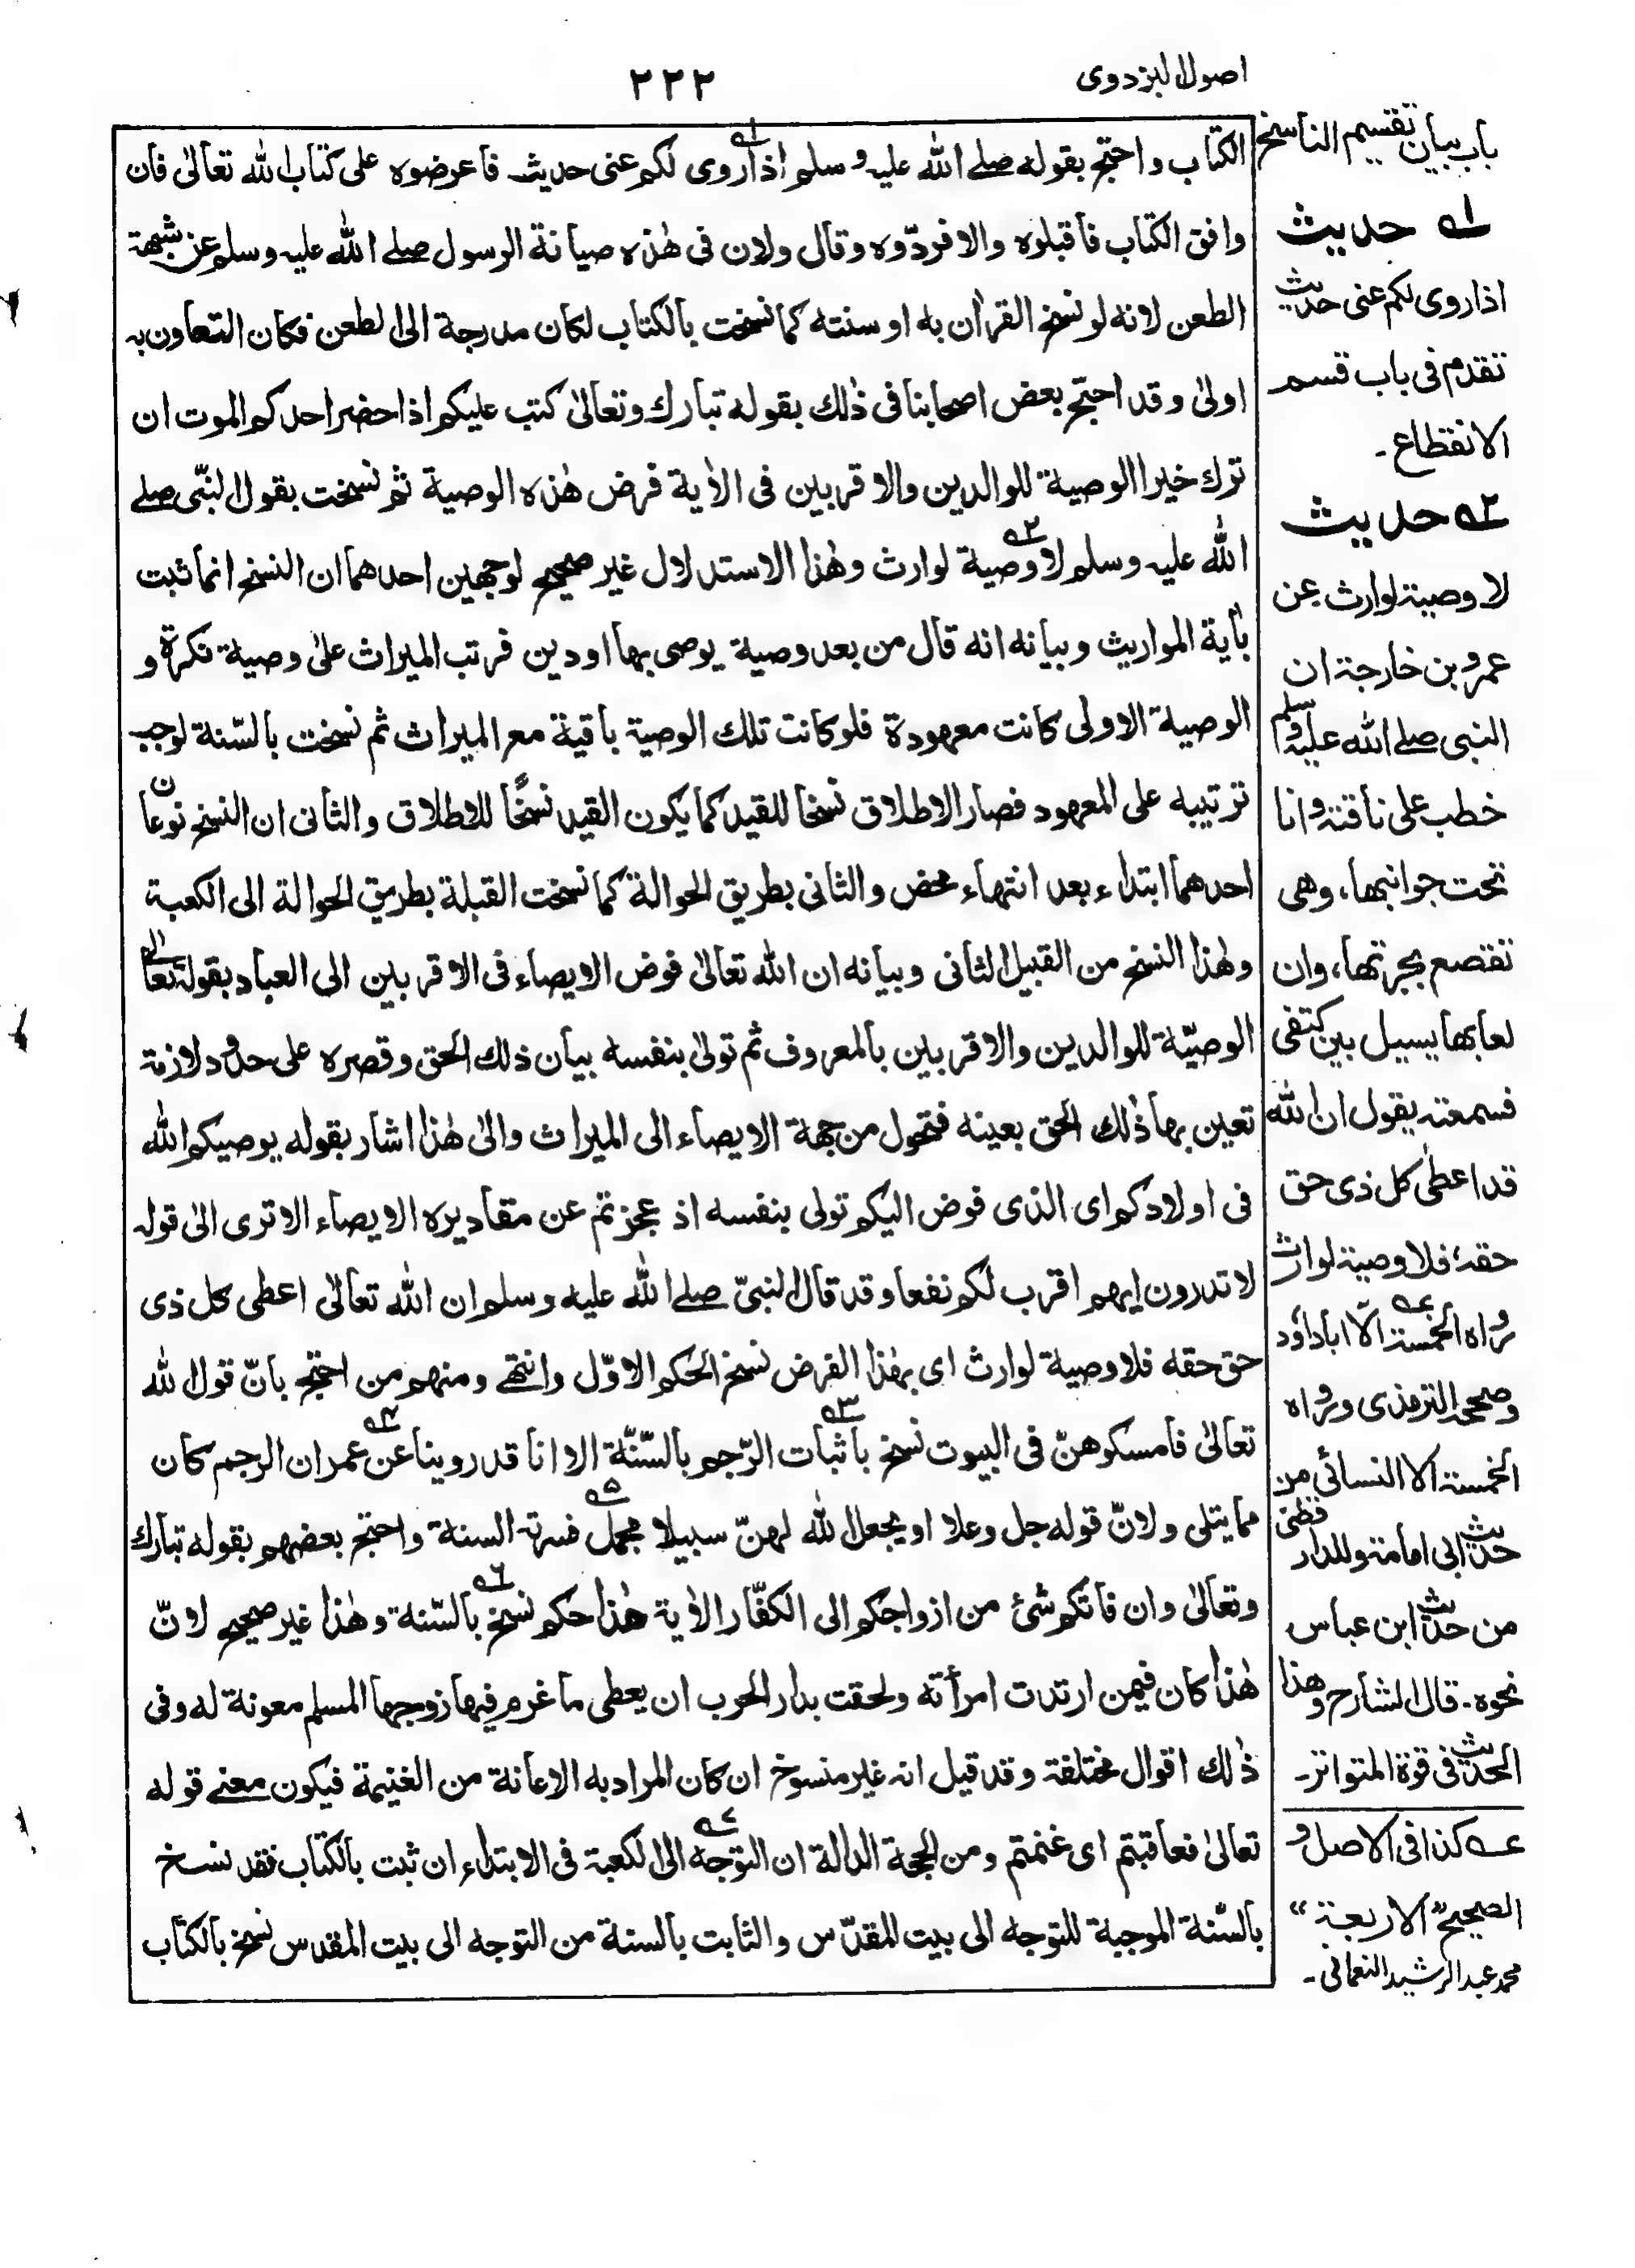 اصول البزدوى
٢٢٢
باب بيان تقسيم الناسخ
الكتاب واحتج بقوله صلے الله عليه وسلم اذا روى لكم عنى حديث فاعرضوه على كتاب الله تعالىٰ فان
وافق الكتاب فاقبلوه والا فردّوه وقال ولان فى هٰذه صيانة الرسول صلے الله عليه وسلم عن شبهة
الطعن لانه لو نسخ القراٰن به او سنته كما نسخت بالكتاب لكان مدرجة الى الطعن فكان التعاون به
اولىٰ وقد احتجّ بعض اصحابنا فى ذٰلك بقوله تبارك وتعالىٰ كتب عليكم اذا حضر احدكم الموت ان
ترك خيرا الوصية للوالدين والاقربين فى الاٰية فرض هٰذه الوصية ثم نسخت بقول النبّى صلے
الله عليه وسلم لا وصية لوارث وهٰذا الاستدلال غير صحيح لوجهين احدهما ان النسخ انما ثبت
باٰية المواريث وبيانه انه قال من بعد وصية يوصى بها او دين فرتب الميراث علىٰ وصية نكرة و
الوصية الاولى كانت معهودة فلو كانت تلك الوصية باقية مع الميراث ثم نسخت بالسّنة لوجب
ترتيبه على المعهود فصار الاطلاق نسخا للقيد كما يكون القيد نسخًا للاطلاق والثانى ان النسخ نوعان
احدهما ابتداء بعد انتهاء محض والثانى بطريق الحوالة كما نسخت القبلة بطريق الحوالة الى الكعبة
وهٰذا النسخ من القبيل الثانى وبيانه ان الله تعالىٰ فوض الايصاء فى الاقربين الى العباد بقوله تعالىٰ
الوصيّة للوالدين والاقربين بالمعروف ثم تولىٰ بنفسه بيان ذلك الحق وقصره على حدود لازمة
تعين بها ذٰلك الحق بعينه فتحول من جهة الايصاء الى الميراث والىٰ هٰذا اشار بقوله يوصيكم الله
فى اولادكم اى الذى فوض اليكم تولى بنفسه اذ عجزتم عن مقاديره الايصاء الا ترى الىٰ قوله
لا تدرون ايهم اقرب لكم نفعا وقد قال النبىّ صلے الله عليه وسلم ان الله تعالىٰ اعطى كل ذى
حق حقه فلا وصية لوارث اى بهٰذا الفرض نسخ الحكم الاوّل وانتهٰے ومنهم من احتج بانّ قول الله
تعالىٰ فامسكوهنّ فى البيوت نسخ باثبات الرّجم بالسّنّة الا انا قد روينا عن عمر ان الرجم كان
مما يتلى ولانّ قوله جل وعلا او يجعل الله لهنّ سبيلا مجمل فسرته السنة واحتج بعضهم بقوله تبارك
وتعالىٰ وان فاتكم شئ من ازواجكم الى الكفّار الاٰية هٰذا حكم نسخ بالسّنة وهٰذا غير صحيح لانّ
هٰذا كان فيمن ارتدت امرأته ولحقت بدار الحرب ان يعطى ما غرم فيها زوجها المسلم معونة له وفى
ذٰلك اقوال مختلفة وقد قيل انه غير منسوخ ان كان المراد به الاعانة من الغنيمة فيكون معنے قوله
تعالىٰ فعاقبتم اى غنمتم ومن الحجة الدالة ان التوجه الى الكعبة فى الابتداء ان ثبت بالكتاب فقد نسخ
بالسّنة الموجبة للتوجه الى بيت المقدّس والثابت بالسنة من التوجه الى بيت المقدس نسخ بالكتاب
١ــه حديث
اذا روى لكم عنى حديث
تقدم فى باب قسم
الانقطاع۔
٢ــه حديث
لا وصية لوارث عن
عمرو بن خارجة ان
النبى صلے الله عليه وسلم
خطب على ناقته وانا
تحت جرانها، وهى
تقصع بجرتها، وان
لعابها يسيل بين كتفى
فسمعته يقول ان الله
قد اعطىٰ كل ذى حق
حقه، فلا وصية لوارث
رواه الخمسة الّا ابا داؤد
وصححه الترمذى ورواه
الخمسة الا النسائى من
حديث ابى امامة وللدارقطنى
من حديث ابن عباس
نحوه۔ قال الشارح وهذا
الحديث فى قوة المتواتر۔
عــه كذا فى الاصل و
الصحيح "الاربعة"
محمد عبد الرشيد النعمانى۔